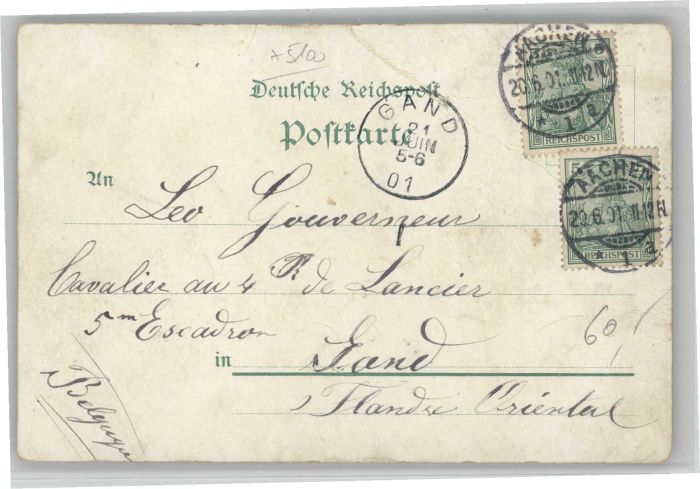 +5/00
Deutsche Reichspost
Postkarte
AACHEN
20.6.01.11-12N
* 1 a
REICHSPOST
GAND
21
JUIN
5-6
01
AACHEN
20.6.01.11-12N
* 1 a
REICHSPOST
An Leo Gouverneur
Cavalier au 4 R de Lancier
5m Escadron
in Gand
60,
Flandre Oriental
Belgique